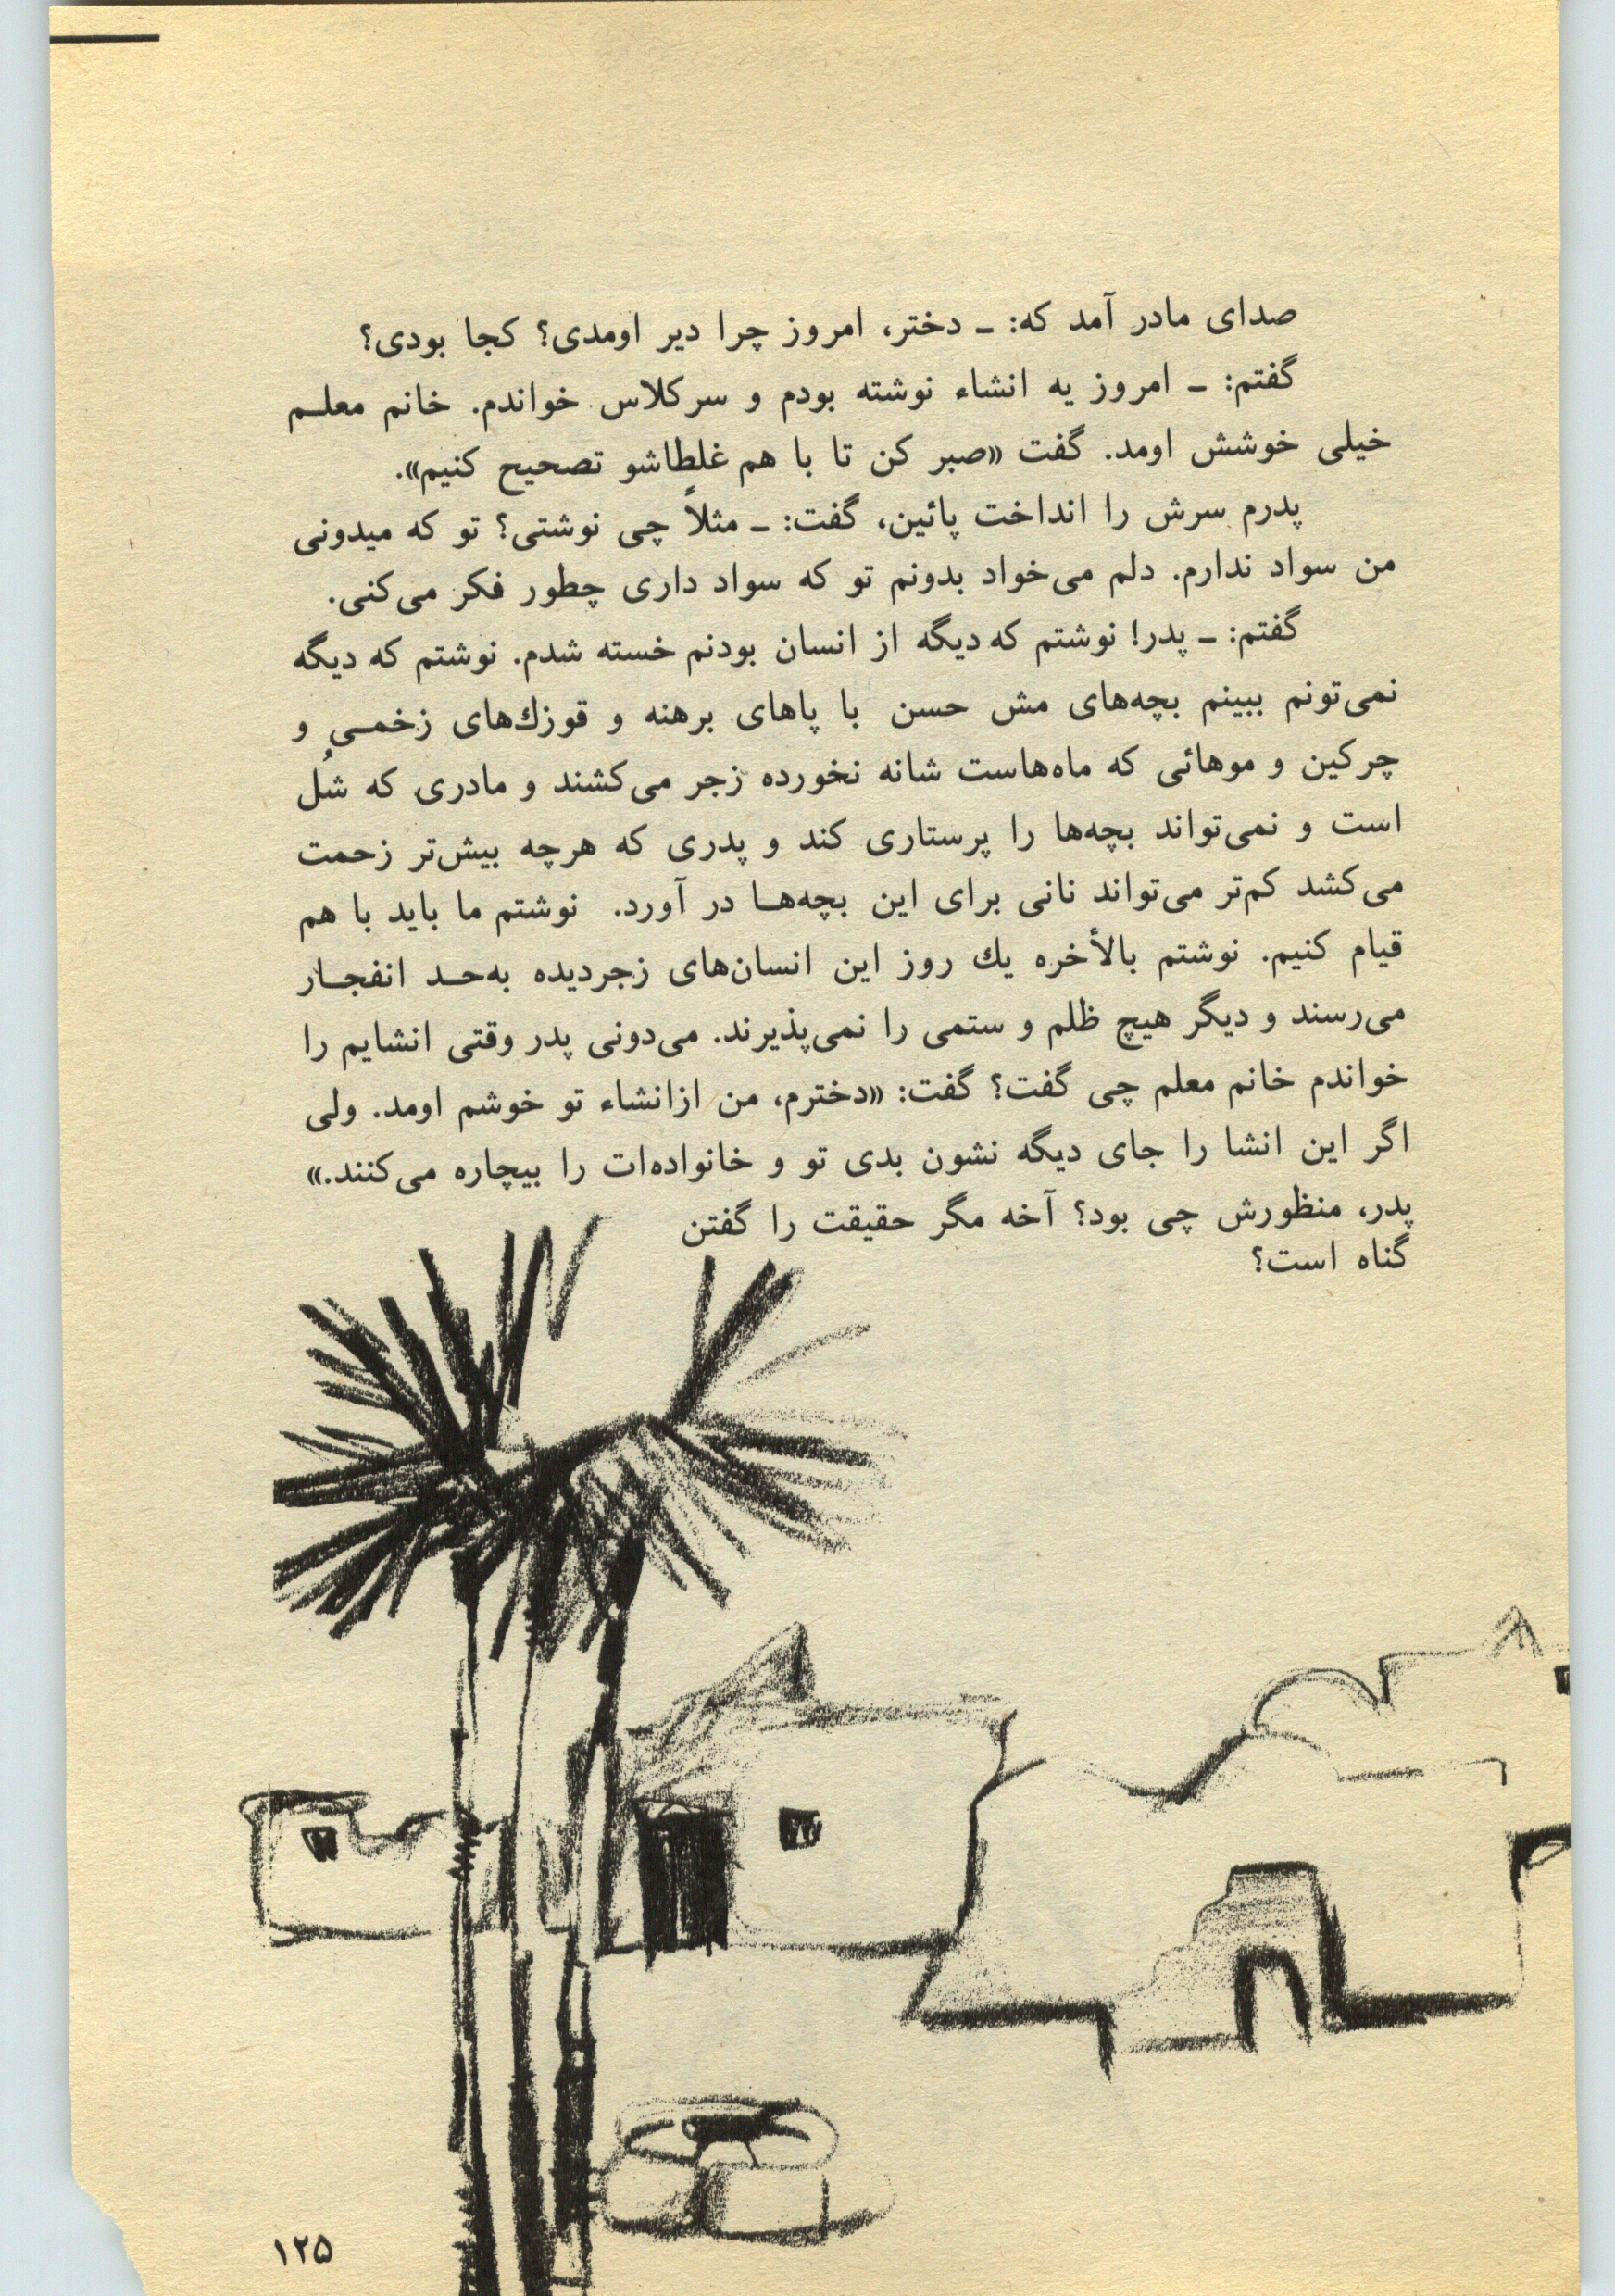 صدای مادر آمد که: ـ دختر، امروز چرا دیر اومدی؟ کجا بودی؟
گفتم: ـ امروز یه انشاء نوشته بودم و سرکلاس خواندم. خانم معلـم
خیلی خوشش اومد. گفت «صبر کن تا با هم غلطاشو تصحیح کنیم».
پدرم سرش را انداخت پائین، گفت: ـ مثلاً چی نوشتی؟ تو که میدونی
من سواد ندارم. دلم می‌خواد بدونم تو که سواد داری چطور فکر می‌کنی.
گفتم: ـ پدر! نوشتم که دیگه از انسان بودنم خسته شدم. نوشتم که دیگه
نمی‌تونم ببینم بچه‌های مش حسن با پاهای برهنه و قوزك‌های زخمـی و
چرکین و موهائی که ماه‌هاست شانه نخورده زجر می‌کشند و مادری که شُل
است و نمی‌تواند بچه‌ها را پرستاری کند و پدری که هرچه بیش‌تر زحمت
می‌کشد کم‌تر می‌تواند نانی برای این بچه‌هـا در آورد. نوشتم ما باید با هم
قیام کنیم. نوشتم بالأخره یك روز این انسان‌های زجردیده به‌حـد انفجـار
می‌رسند و دیگر هیچ ظلم و ستمی را نمی‌پذیرند. می‌دونی پدر وقتی انشایم را
خواندم خانم معلم چی گفت؟ گفت: «دخترم، من ازانشاء تو خوشم اومد. ولی
اگر این انشا را جای دیگه نشون بدی تو و خانواده‌ات را بیچاره می‌کنند.»
پدر، منظورش چی بود؟ آخه مگر حقیقت را گفتن
گناه است؟
۱۲۵